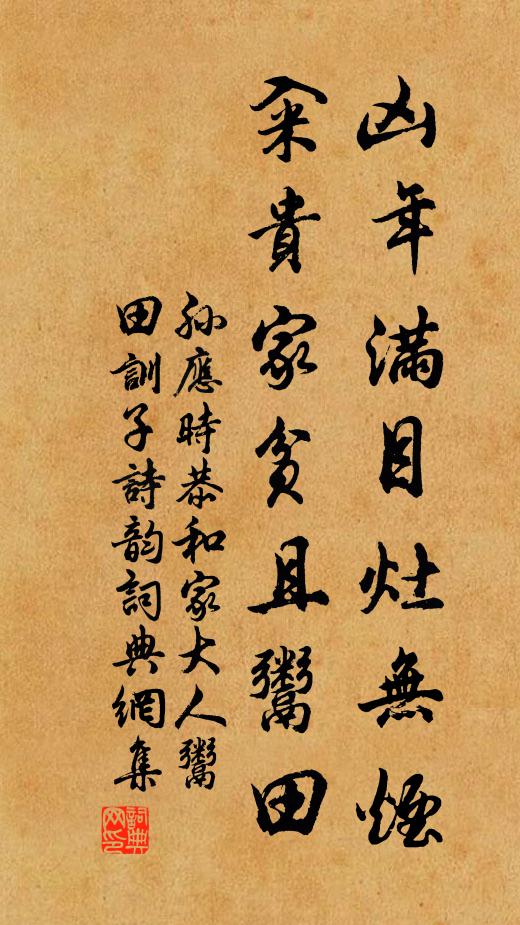 凶年滿目灶無煙
籴貴家貧且鬻田
孙應時恭和家大人鬻
田訓子詩韵詞典網集
詞典
网印